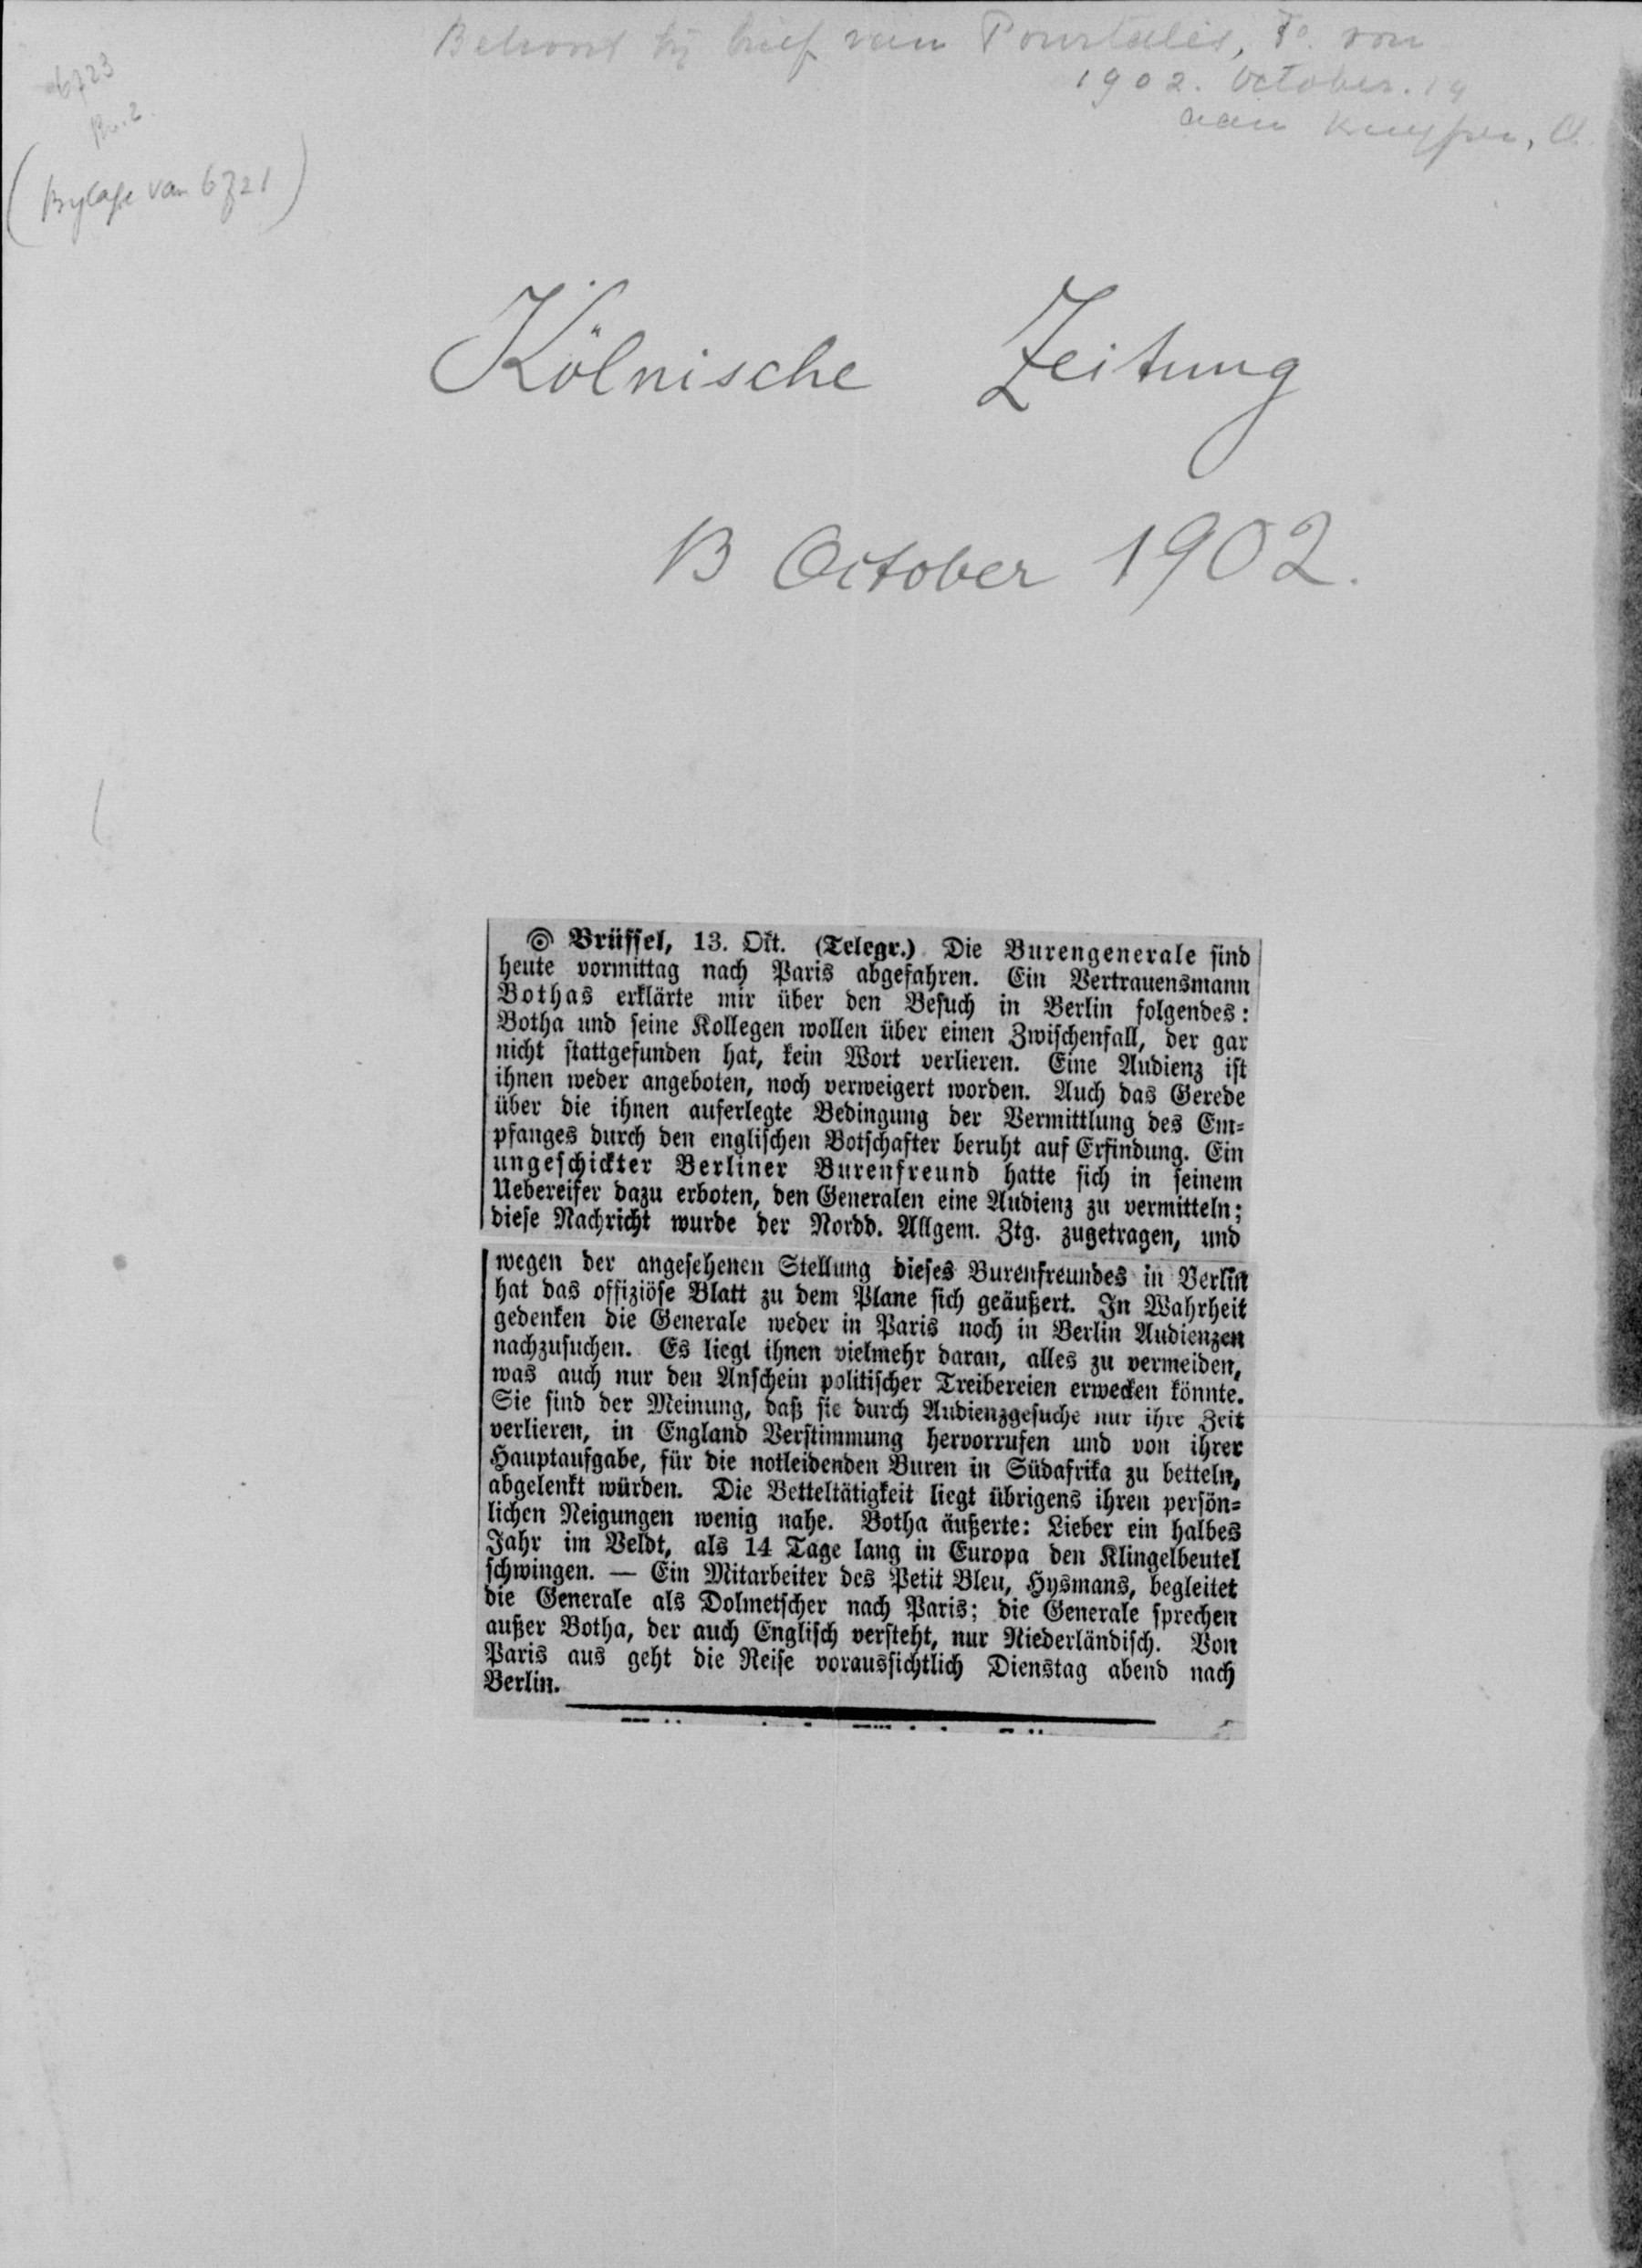 Behoort bij brief van Pourtalès, F. von
1902. October. 14
aan Kuyper, A.
6723
Br. 2.
(Bylage van 6721)
Kölnische Zeitung
13 October 1902.
Brüssel, 13. Okt. (Telegr.) Die Burengenerale sind
heute vormittag nach Paris abgefahren. Ein Vertrauensmann
Bothas erklärte mir über den Besuch in Berlin folgendes:
Botha und seine Kollegen wollen über einen Zwischenfall, der gar
nicht stattgefunden hat, kein Wort verlieren. Eine Audienz ist
ihnen weder angeboten, noch verweigert worden. Auch das Gerede
über die ihnen auferlegte Bedingung der Vermittlung des Em-
pfanges durch den englischen Botschafter beruht auf Erfindung. Ein
ungeschickter Berliner Burenfreund hatte sich in seinem
Uebereifer dazu erboten, den Generalen eine Audienz zu vermitteln;
diese Nachricht wurde der Nordd. Allgem. Ztg. zugetragen, und
wegen der angesehenen Stellung dieses Burenfreundes in Berlin
hat das offiziöse Blatt zu dem Plane sich geäußert. In Wahrheit
gedenken die Generale weder in Paris noch in Berlin Audienzen
nachzusuchen. Es liegt ihnen vielmehr daran, alles zu vermeiden,
was auch nur den Anschein politischer Treibereien erwecken könnte.
Sie sind der Meinung, daß sie durch Audienzgesuche nur ihre Zeit
verlieren, in England Verstimmung hervorrufen und von ihrer
Hauptaufgabe, für die notleidenden Buren in Südafrika zu betteln,
abgelenkt würden. Die Betteltätigkeit liegt übrigens ihren persön-
lichen Neigungen wenig nahe. Botha äußerte: Lieber ein halbes
Jahr im Veldt, als 14 Tage lang in Europa den Klingelbeutel
schwingen. — Ein Mitarbeiter des Petit Bleu, Hysmans, begleitet
die Generale als Dolmetscher nach Paris; die Generale sprechen
außer Botha, der auch Englisch versteht, nur Niederländisch. Von
Paris aus geht die Reise voraussichtlich Dienstag abend nach
Berlin.